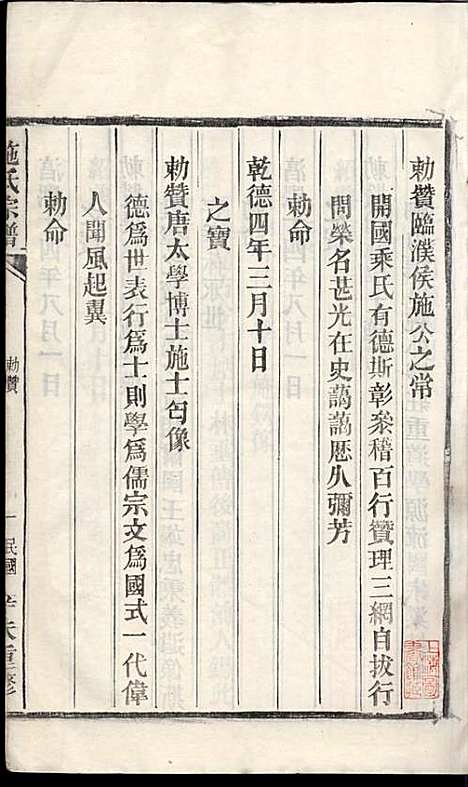 勅贊臨濮侯施公之常
開國乘氏有德斯彰叅稽百行贊理三綱自拔行
間榮名甚光在史藹藹歷久彌芳
勅命
乾德四年三月十日
之寶
勅贊唐太學博士施士匄像
德爲世表行爲士則學爲儒宗文爲國式一代偉
人聞風起翼
勅命
施氏宗譜
勅贊
一
民國辛未重修